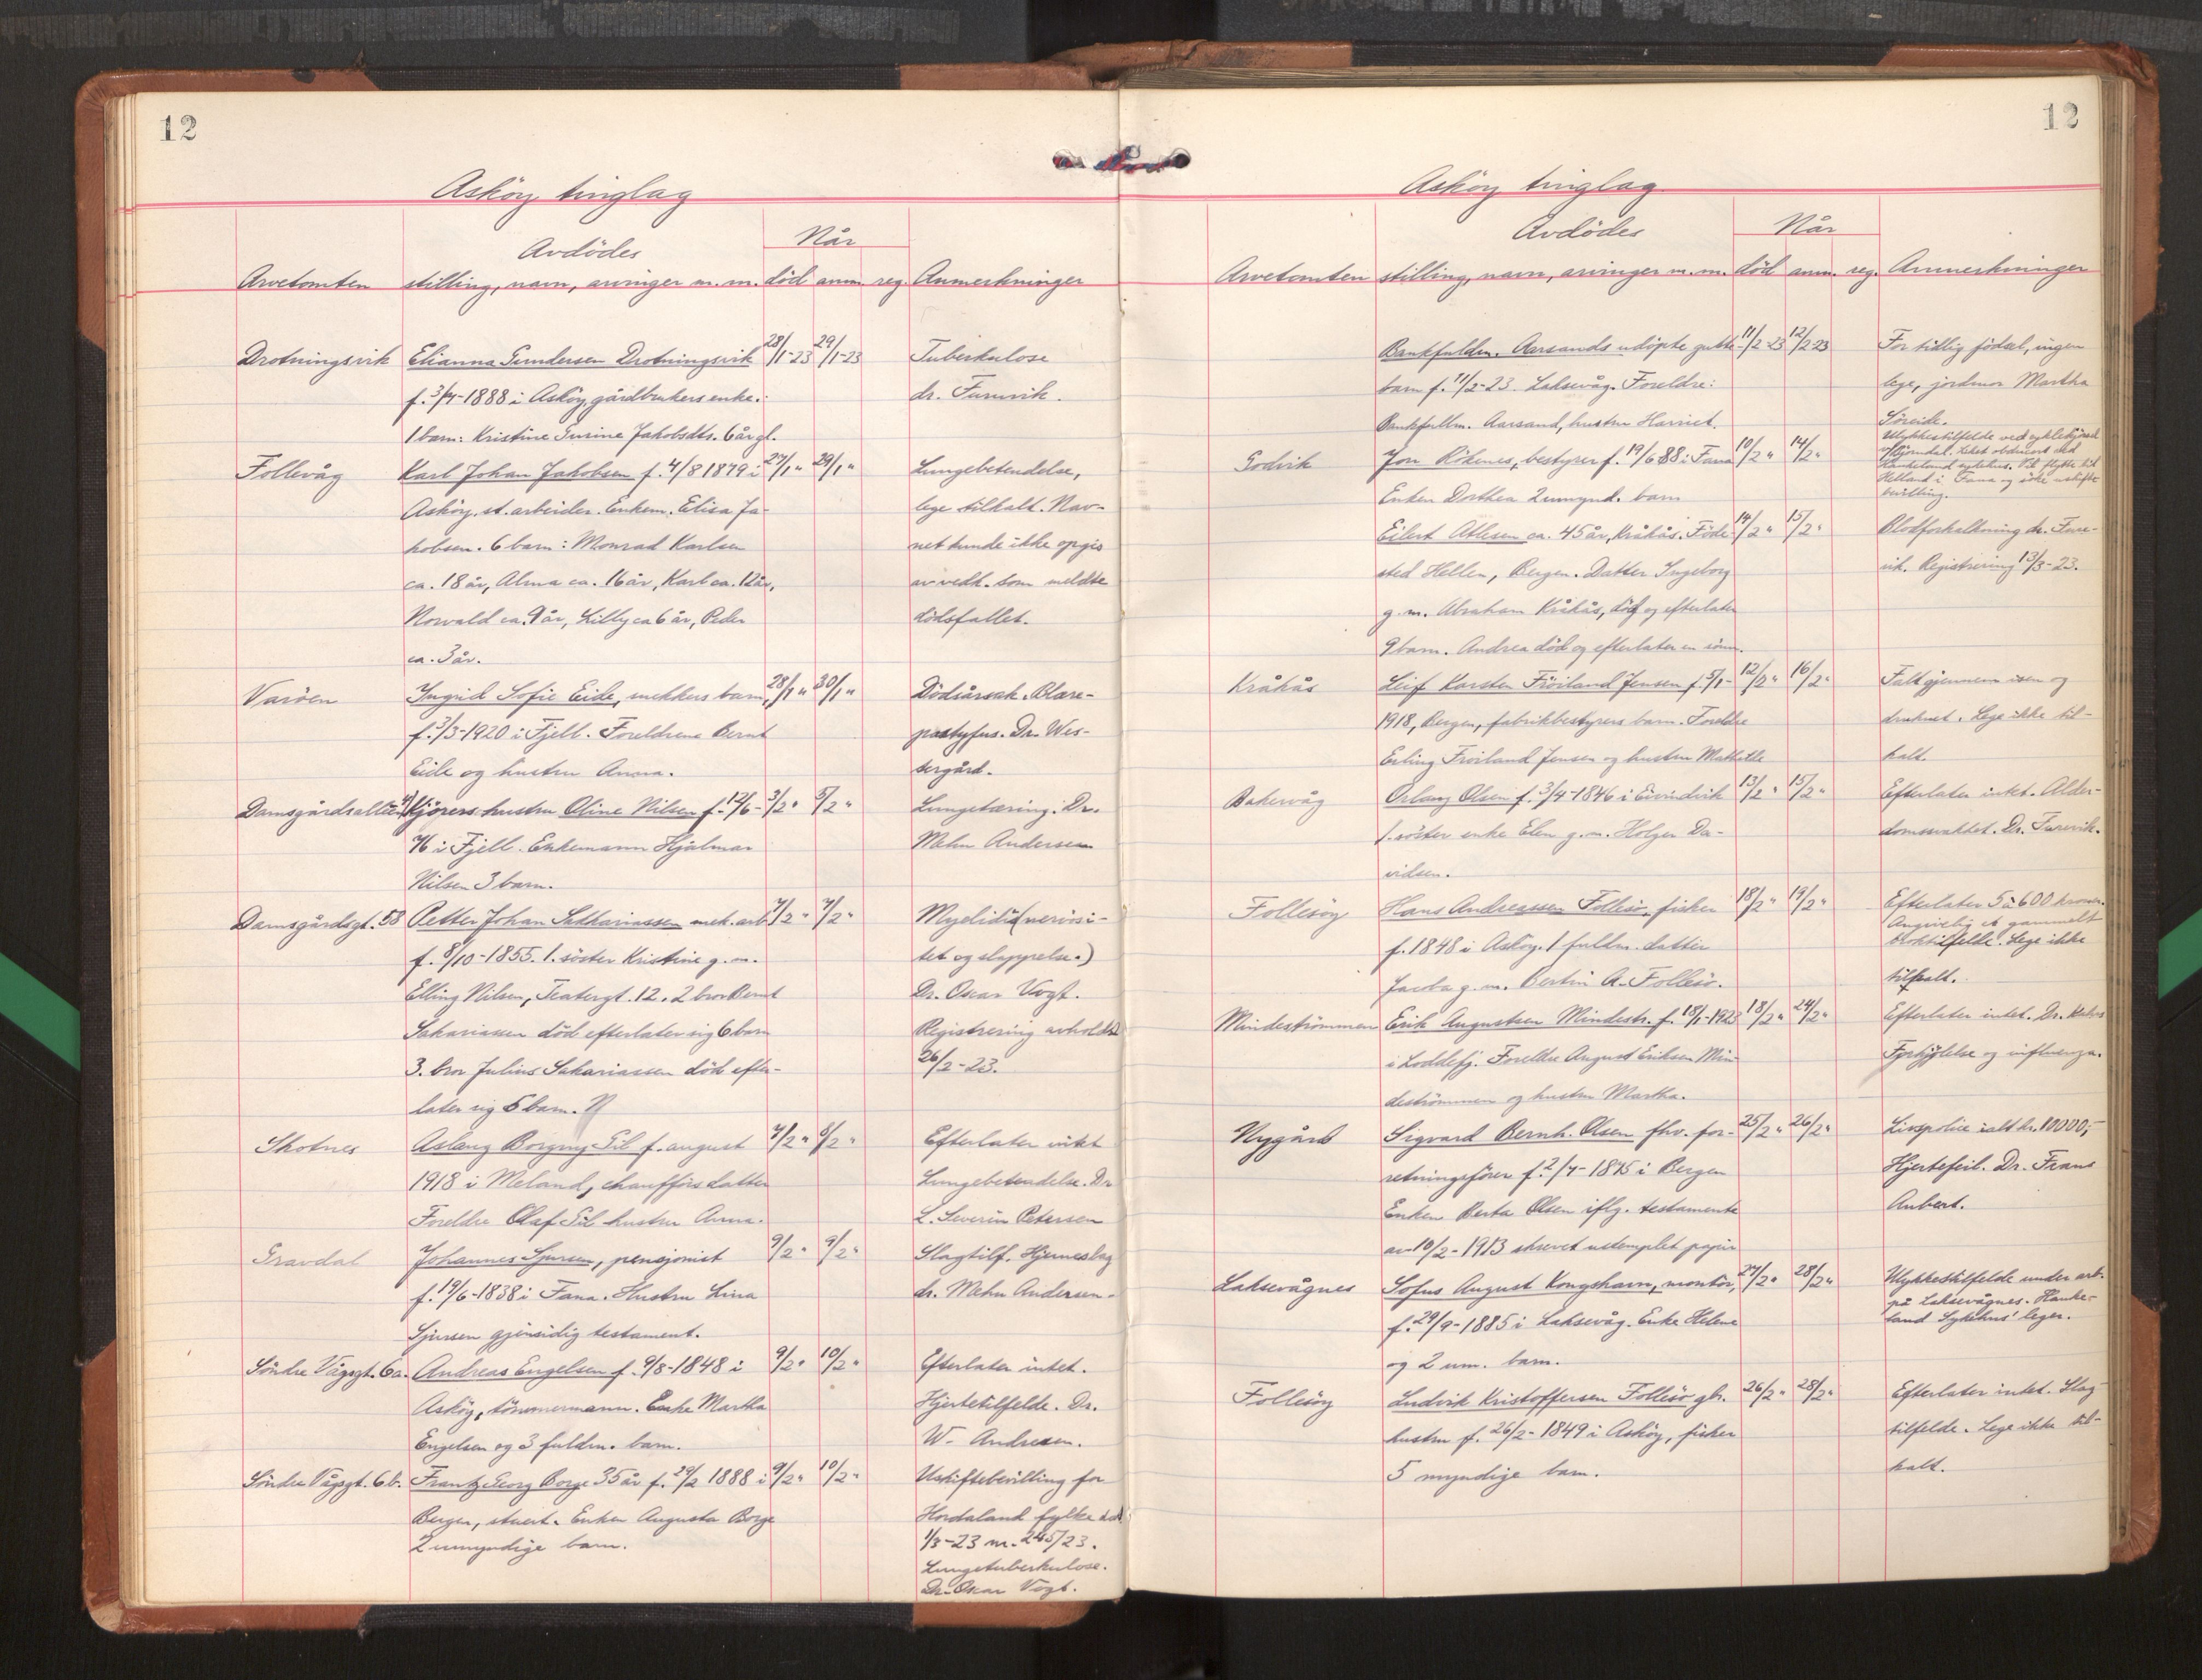 12
Asköy tinglag
Avdödes
Når
Arvetomten stilling, navn, arvinger m. m. död anm. reg. Anmerkninger
Drotningsvik Elianna Gundersen Drotningsvik 28/1-23 29/1-23 Tuberkulose
f. 3/4-1888 i Asköy, gårdbrukers enke. dr. Furuvik.
1 barn: Kristine Gurine Jakobsdts. 6 år gl.
Follevåg Karl Johan Jakobsen f. 4/8 1879 i 27/1 " 29/1 " Lungebetendelse,
Asköy. st. arbeider. Enkem. Elisa Ja- lege tilkalt. Nav-
kobsen. 6 barn: Monrad Karlsen net kunde ikke opgis
ca. 18 år, Alma ca. 16 år, Karl ca. 12 år, av vedk. som meldte
Norvald ca. 9 år, Lilly ca 6 år, Peder dödsfallet.
ca. 3 år.
Varöen Ingrid Sofie Eide, snekkers barn, 28/1 " 30/1 " Dödsårsak. Blære-
f. 3/3-1920 i Fjell. Foreldrene Bernt Dr. Wes-
Eide og hustru Anna. tergård.
Damsgårdsalleen Kjörers hustru Oline Nilsen f. 12/6- 3/2 " 5/2 " Lungetæring. Dr.
76 i Fjell. Enkemann Hjalmar Mehn Andersen
Nilsen 3 barn.
Damsgårdsgt. 58 Petter Johan Sakkariassen mek. arb. 7/2 " 7/2 " (nervösi-
f. 8/10-1855. 1. söster Kristine g. m. tet og slappelse.)
Elling Nilsen, Teatergt. 12. 2 bror Bernt Dr. Oscar Vogt.
Sakariassen död efterlater sig 6 barn Registrering avholdt
3. bror Julius Sakariassen död efter- 26/2-23.
later sig 5 barn.
Skotnes Aslaug Borgny Gil f. august 7/2 " 8/2 " Efterlater intet
1918 i Meland, chaufförs datter Lungebetendelse. Dr
Foreldre Olaf Gil hustru Anna. L. Severin Petersen
Gravdal Johannes Sjursen, pensjonist 9/2 " 9/2 " Slagtilf. Hjerneslag
f. 19/6-1838 i Fana. Hustru Lina dr. Mehn Andersen.
Sjursen gjensidig testament.
Söndre Vågsgt. 6a. Andreas Engelsen f. 9/8-1848 i 9/2 " 10/2 " Efterlater intet.
Asköy, tömmermann. Enke Martha Hjertetilfelde. Dr.
Engelsen og 3 fuldm. barn. W. Andresen.
Söndre Vågsgt. 6b. Frantz Georg Borge 35 år f. 29/2 1888 i 9/2 " 10/2 " Uskiftebevilling for
Bergen, stuert. Enken Augusta Borge Hordaland fylke dat
2 umyndige barn. 1/3-23 nr. 245/23.
Lungetuberkulose.
Dr. Oscar Vogt.
12
Asköy tinglag
Avdödes
Når
Arvetomten stilling, navn, arvinger m. m. död anm. reg. Anmerkninger
Bankfuldm. Aarsands udöpte gutte- 11/2-23 12/2-23 For tidlig födsel, ingen
barn f. 11/2-23. Laksevåg. Foreldre: lege, jordmor Martha
Bankfullm. Aarsand, hustru Harriet. Söreide.
Godvik Jon Rökenes, bestyrer f. 19/6 88 i Fana 10/2 " 14/2 " Ulykkestilfelde ved cyklekjörsel
Liket obducert ved
Enken Dorthea 2 umynd. barn Haukeland sykehus. Vil flytte til
Helland i Fana og söke uskifte-
bevilling.
Eilert Atlesen ca. 45 år, Kråkås. Föde- 14/2 " 15/2 " Blodforkalkning dr. Fure-
sted Hellen, Bergen. Datter Ingeborg vik. Registrering 13/3-23.
g. m. Abraham Kråkås, död og efterlater
9 barn. Andrea död og efterlater en sönn.
Kråkås Leif Karsten Fröiland Jensen f. 5/1- 12/2 " 16/2 " Falt gjennem isen og
1918, Bergen, fabrikbestyrers barn. Foreldre druknet. Lege ikke til-
Erling Fröiland Jensen og hustru Mathilde kalt.
Bakervåg Olsen f. 3/4-1846 i Eivindvik 13/2 " 15/2 " Efterlater intet. Alder-
1. söster enke Elen g. m. Holger Da- domssvakhet. Dr. Furevik.
vidsen.
Follesöy Hans Andreassen Follesö fisker 18/2 " 19/2 " Efterlater 5 à 600 kroner.
f. 1848 i Asköy. 1 fuldm. datter Angivelig et gammelt
Jacoba g. m. Bertin A. Follesö. broktilfelde. Lege ikke
tilkalt.
Mindeströmmen Erik Augustsen Mindestr. f. 18/1-1923 18/2 " 24/2 " Efterlater intet. Dr.
i Loddefj. Foreldre August Eriksen Min- Forkjölelse og influenza.
deströmmen og hustru Martha.
Nygård Sigvard Bernh. Olsen fhv. for- 25/2 " 26/2 " Livspolice ialt kr. 10000,-
retningsförer f. 2/4-1875 i Bergen Hjertefeil. Dr. Frans
Enken Berta Olsen iflg. testamente Aubert.
av 10/2-1913 skrevet ustemplet papir
Laksevågnes Sofus August Kongshavn, montör, 27/2 " 28/2 " Ulykkestilfelde under arb.
f. 29/9-1885 i Laksevåg. Enke Helene på Laksevågnes. Hauke-
og 2 um. barn. land Sykehus' leger.
Follesöy Ludvik Kristoffersen Follesö gbr. 26/2 " 28/2 " Efterlater intet. Slag-
hustru f. 26/2-1849 i Asköy, fisker tilfelde. Lege ikke til-
5 myndige barn. kalt.